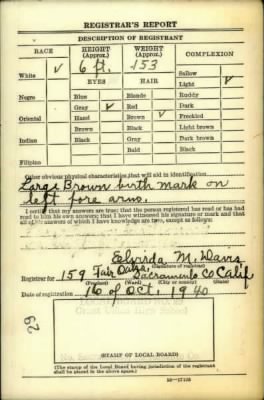 REGISTRAR'S REPORT
DESCRIPTION OF REGISTRANT
RACE HEIGHT (Approx.) WEIGHT (Approx.) COMPLEXION
6 ft. 153
White ✓ EYES HAIR Sallow
Light ✓
Negro Blue Blonde Ruddy
Gray ✓ Red Dark
Oriental Hazel Brown ✓ Freckled
Brown Black Light brown
Indian Black Gray Dark brown
Bald Black
Filipino
Other obvious physical characteristics that will aid in identification
Large Brown birth mark on
left fore arm.
I certify that my answers are true; that the person registered has read or has had
read to him his own answers; that I have witnessed his signature or mark and that
all of his answers of which I have knowledge are true, except as follows:
Elvirda M. Davis
(Signature of registrar)
Registrar for 159 Fair Oaks, Sacramento Co Calif
(Precinct) (Ward) (City or county) (State)
Date of registration 16 of Oct. 1940
29
(STAMP OF LOCAL BOARD)
(The stamp of the Local Board having jurisdiction of the registrant
shall be placed in the above space.)